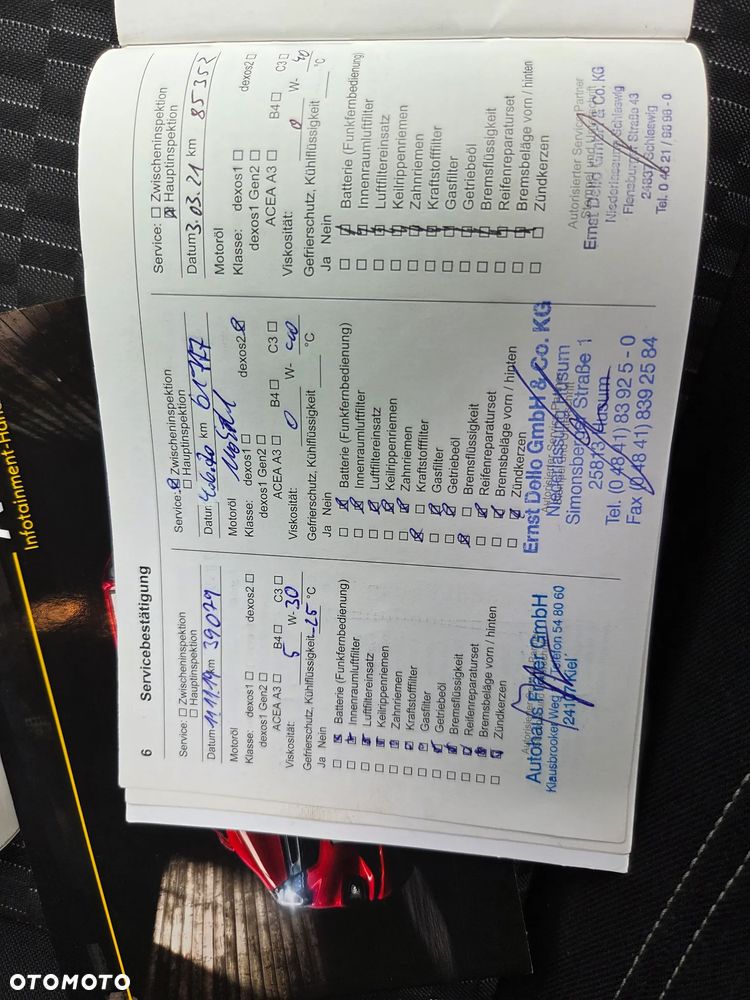 6 Servicebestätigung
Service: □ Zwischeninspektion
□ Hauptinspektion
Datum 11.11.19 km 39079
Motoröl
Klasse: dexos1 □ dexos2 □
dexos1 Gen2 □
ACEA A3 □ B4 □ C3 □
Viskosität: 5 W- 30
Gefrierschutz, Kühlflüssigkeit -25 °C
Ja Nein
Batterie (Funkfernbedienung)
Innenraumluftfilter
Luftfiltereinsatz
Keilrippenriemen
Zahnriemen
Kraftstofffilter
Gasfilter
Getriebeöl
Bremsflüssigkeit
Reifenreparaturset
Bremsbeläge vorn / hinten
Zündkerzen
Autohaus GmbH
Klausbrooker Weg Telefon 54 80 60
Kiel
Service: ☒ Zwischeninspektion
□ Hauptinspektion
Datum km
Motoröl
Klasse: dexos1 □ dexos2 ☒
dexos1 Gen2 □
ACEA A3 □ B4 □ C3 □
Viskosität: 0 W-
Gefrierschutz, Kühlflüssigkeit °C
Ja Nein
Batterie (Funkfernbedienung)
Innenraumluftfilter
Luftfiltereinsatz
Keilrippenriemen
Zahnriemen
Kraftstofffilter
Gasfilter
Getriebeöl
Bremsflüssigkeit
Reifenreparaturset
Bremsbeläge vorn / hinten
Zündkerzen
Ernst Dello GmbH & Co. KG
Niederlassung Husum
Simonsberger Straße 1
25813 Husum
Tel. (0 48 41) 83 92 5 - 0
Fax (0 48 41) 839 25 84
Service: □ Zwischeninspektion
☒ Hauptinspektion
Datum 3.03.21 km 85353
Motoröl
Klasse: dexos1 □ dexos2 □
dexos1 Gen2 □
ACEA A3 □ B4 □ C3 □
Viskosität: 0 W- 40
Gefrierschutz, Kühlflüssigkeit °C
Ja Nein
Batterie (Funkfernbedienung)
Innenraumluftfilter
Luftfiltereinsatz
Keilrippenriemen
Zahnriemen
Kraftstofffilter
Gasfilter
Getriebeöl
Bremsflüssigkeit
Reifenreparaturset
Bremsbeläge vorn / hinten
Zündkerzen
Autorisierter Service Partner
Ernst Dello GmbH & Co. KG
Niederlassung Schleswig
Flensburger Straße 43
24837 Schleswig
OTOMOTO